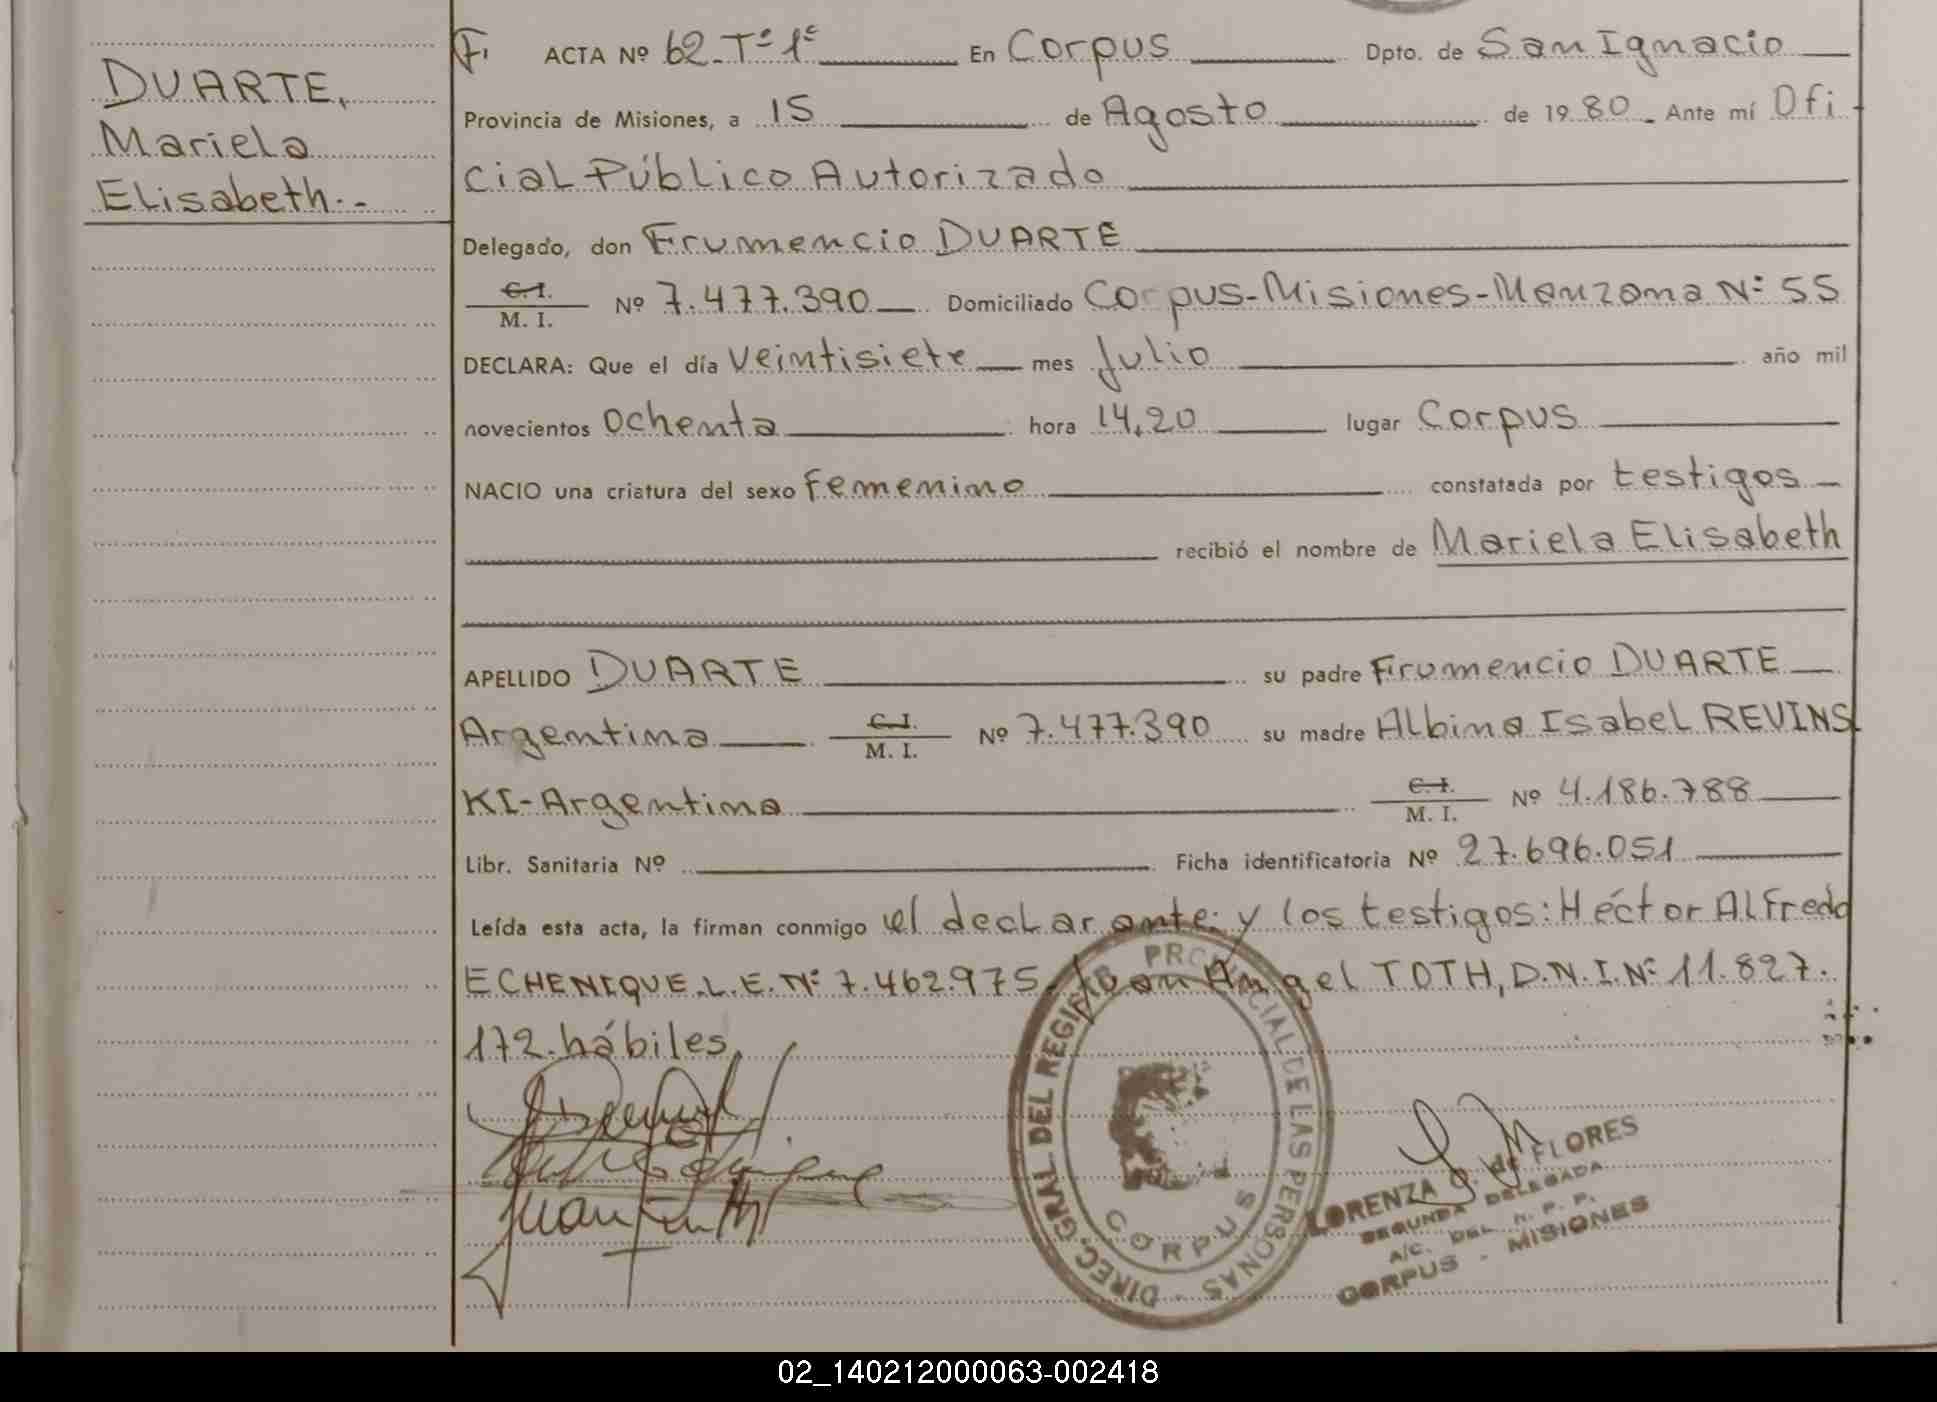 DUARTE,
Mariela
Elisabeth.-
F. ACTA Nº 62 Tº 1º En Corpus Dpto. de San Ignacio
Provincia de Misiones, a 15 de Agosto de 1980 Ante mí Ofi
cial Público Autorizado
Delegado, don Frumencio DUARTE
C.I. M. I. Nº 7.477.390 Domiciliado Corpus-Misiones-Manzana Nº 55
DECLARA: Que el día veintisiete mes Julio año mil
novecientos ochenta hora 14,20 lugar Corpus
NACIO una criatura del sexo femenino constatada por testigos
recibió el nombre de Mariela Elisabeth
APELLIDO DUARTE su padre Frumencio DUARTE
Argentina C.I. M. I. Nº 7.477.390 su madre Albina Isabel REVINS
KI-Argentina C.I. M. I. Nº 4.186.788
Libr. Sanitaria Nº Ficha identificatoria Nº 27.696.051
Leída esta acta, la firman conmigo el declarante y los testigos: Héctor Alfredo
ECHENIQUE.L.E.Nº 7.462.975. Juan Angel TOTH, D.N.I.Nº 11.827.
172.hábiles,
DIREC. GRAL. DEL REGISTRO PROVINCIAL DE LAS PERSONAS
CORPUS
LORENZA G. de FLORES
SEGUNDA DELEGADA
A/C. DEL R. P. P.
CORPUS - MISIONES
02_140212000063-002418